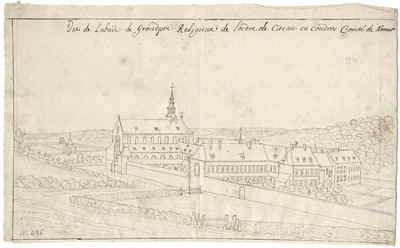 Vüe de Labaïe de Grandpré Religieux de Lordre de Citeau en Condros Comté de Namur
N. 496